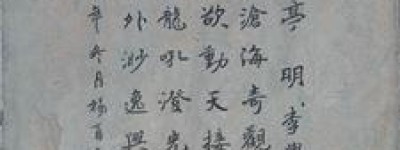 亭 明 李
滄海奇觀
欲動天接
龍吼澄
外渺逸興
年冬月楊百